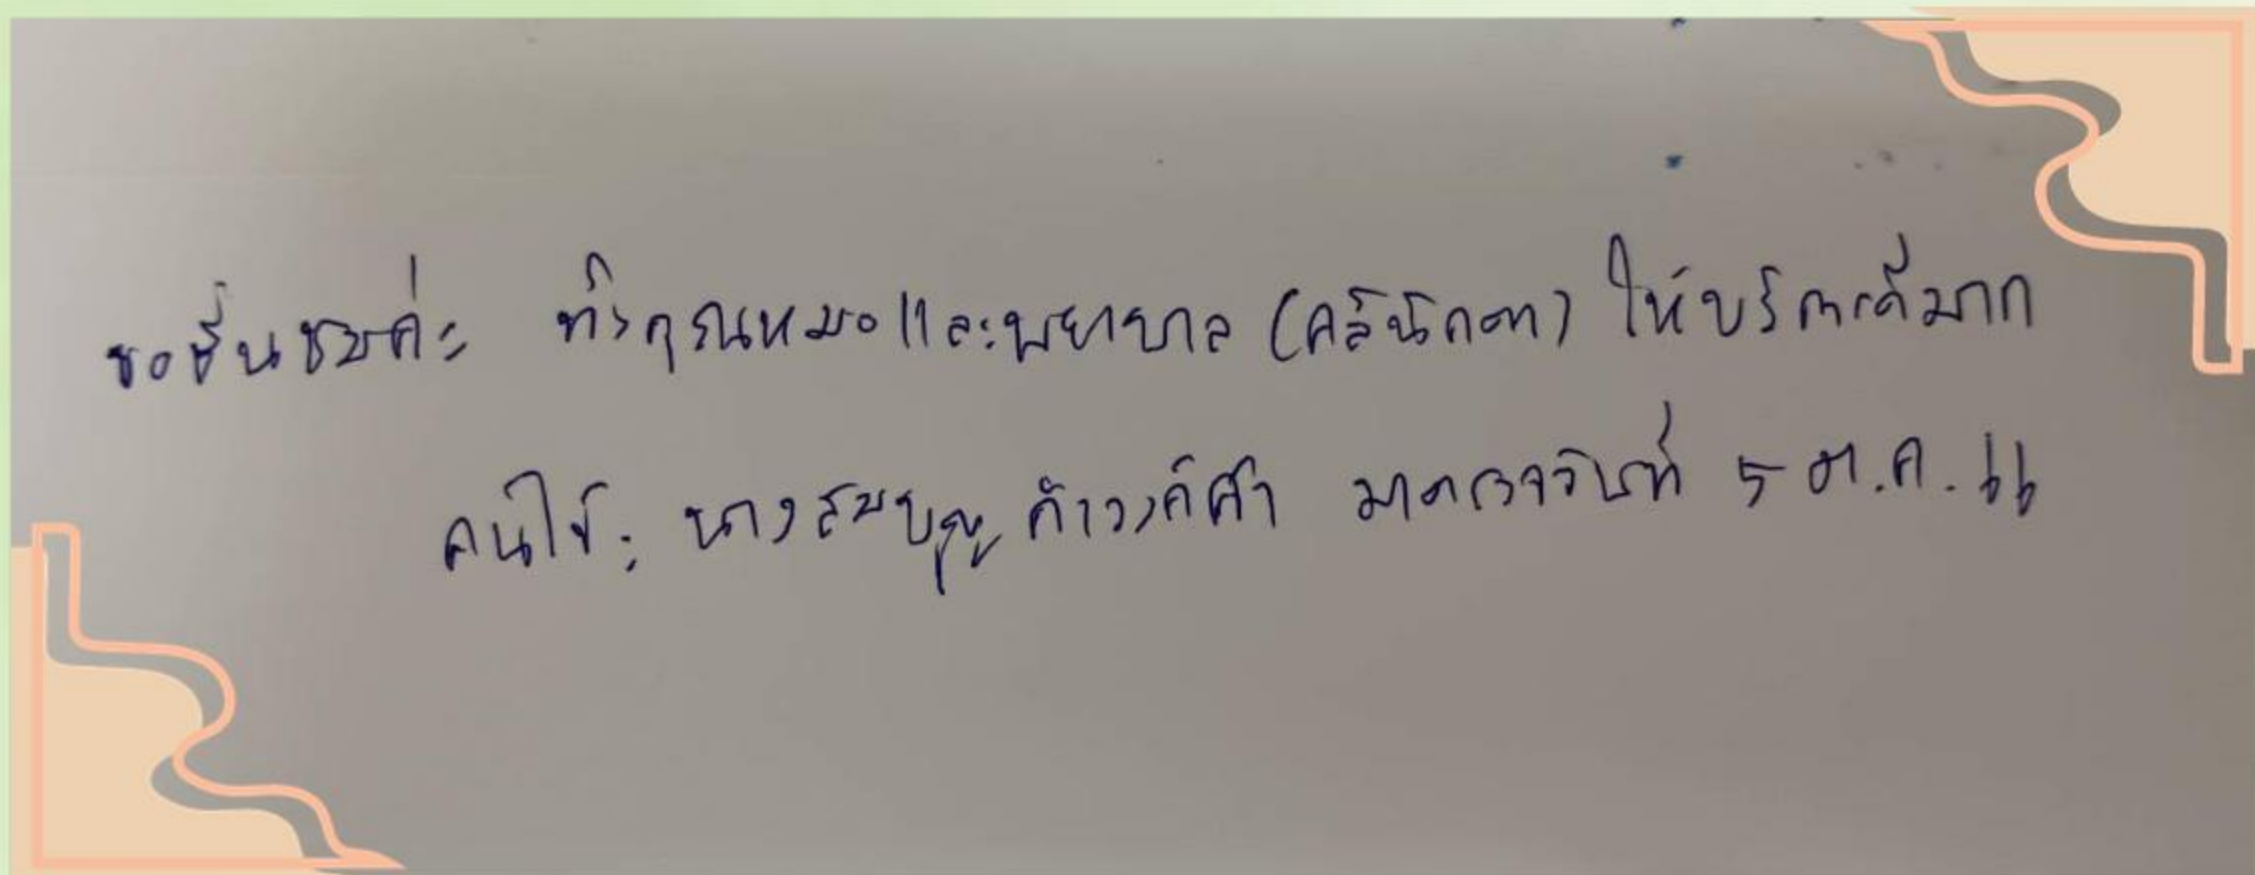 ขอชื่นชมค่ะ ทั้งคุณหมอและพยาบาล (คลีนิกตา) ให้บริการดีมาก
คนไข้: นางสมบุญ มาตรวจวันที่ 5 ต.ค. 66